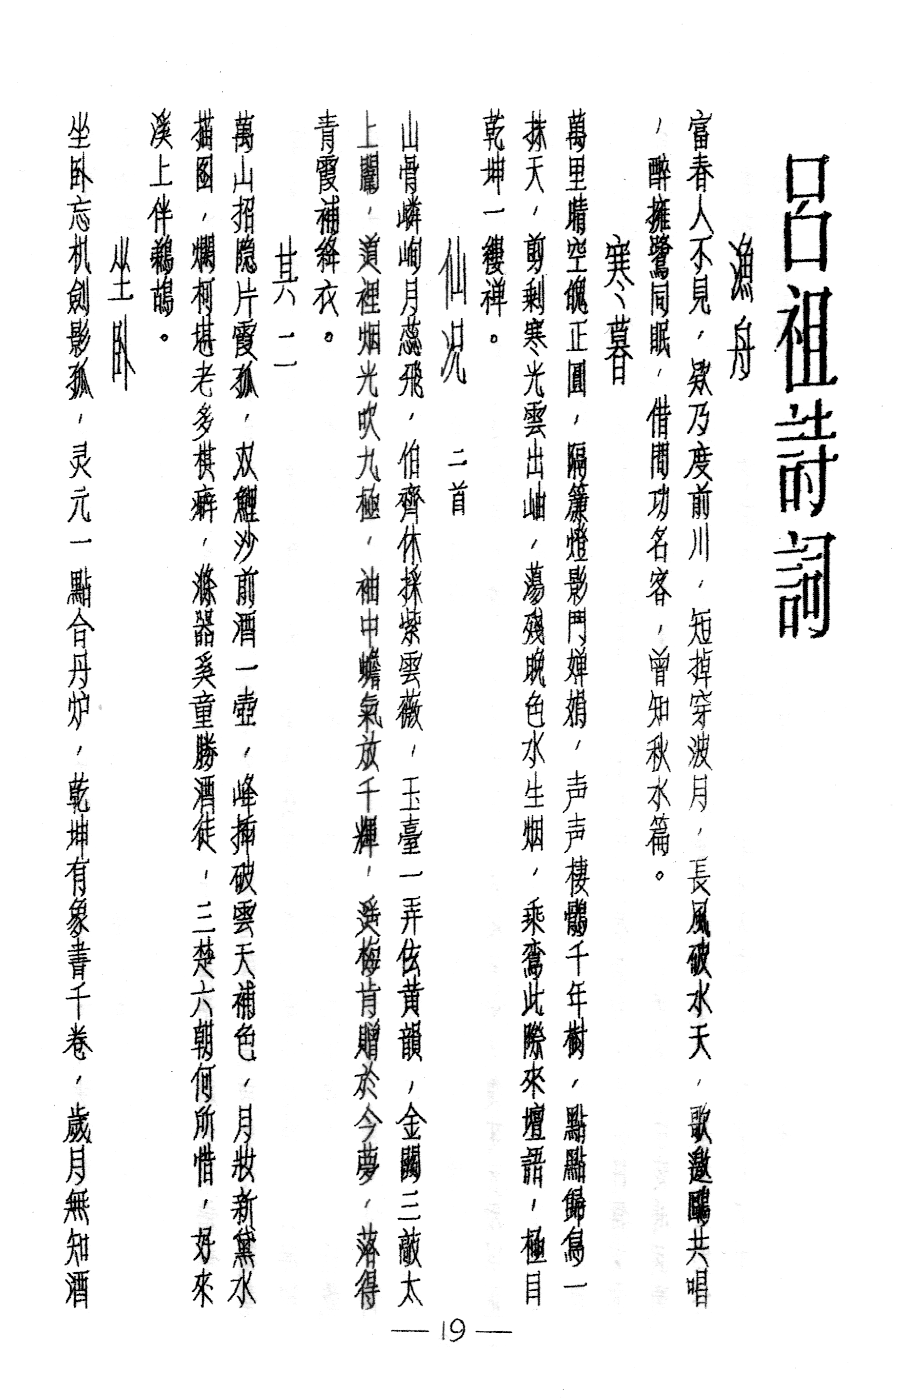 呂祖詩詞
漁舟
富春人不見，欸乃度前川，短掉穿波月，長風破水天，歌邀鷗共唱
，醉擁鷺同眠，借問功名客，曾知秋水篇。
寒暮
萬里晴空魄正圓，隔簾燈影鬥嬋娟，声声棲鶻千年樹，點點歸鳥一
抹天，剪剩寒光雲出岫，蕩殘晚色水生烟，乘鸞此際來壇語，極目
乾坤一縷禅。
仙況 二首
山骨嶙峋月蕊飛，伯齊休採紫雲薇，玉臺一弄佐黄韻，金闕三敲太
上闈，道裡烟光吹九極，袖中蟾氣放千輝，遺梅肯贈於今夢，落得
青霞補絳衣。
其二
萬山招隐片霞孤，双鯉沙前酒一壺，峰插破雲天補色，月妝新黛水
描图，爛柯堪老多棋癖，滌器奚童勝酒徒，三楚六朝何所惜，好來
溪上伴鵜鴣。
坐卧
坐卧忘机劍影孤，灵元一點合丹炉，乾坤有象書千卷，歲月無知酒
— 19 —